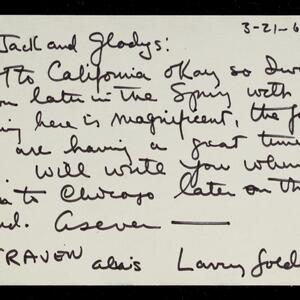 3-21-6
Jack and Gladys:
to California okay so
later in the Spring with
here is magnificent, the
are having a great time
will write you when
to Chicago later on th
d. As ever —
TRAVEN alias Larry Gold